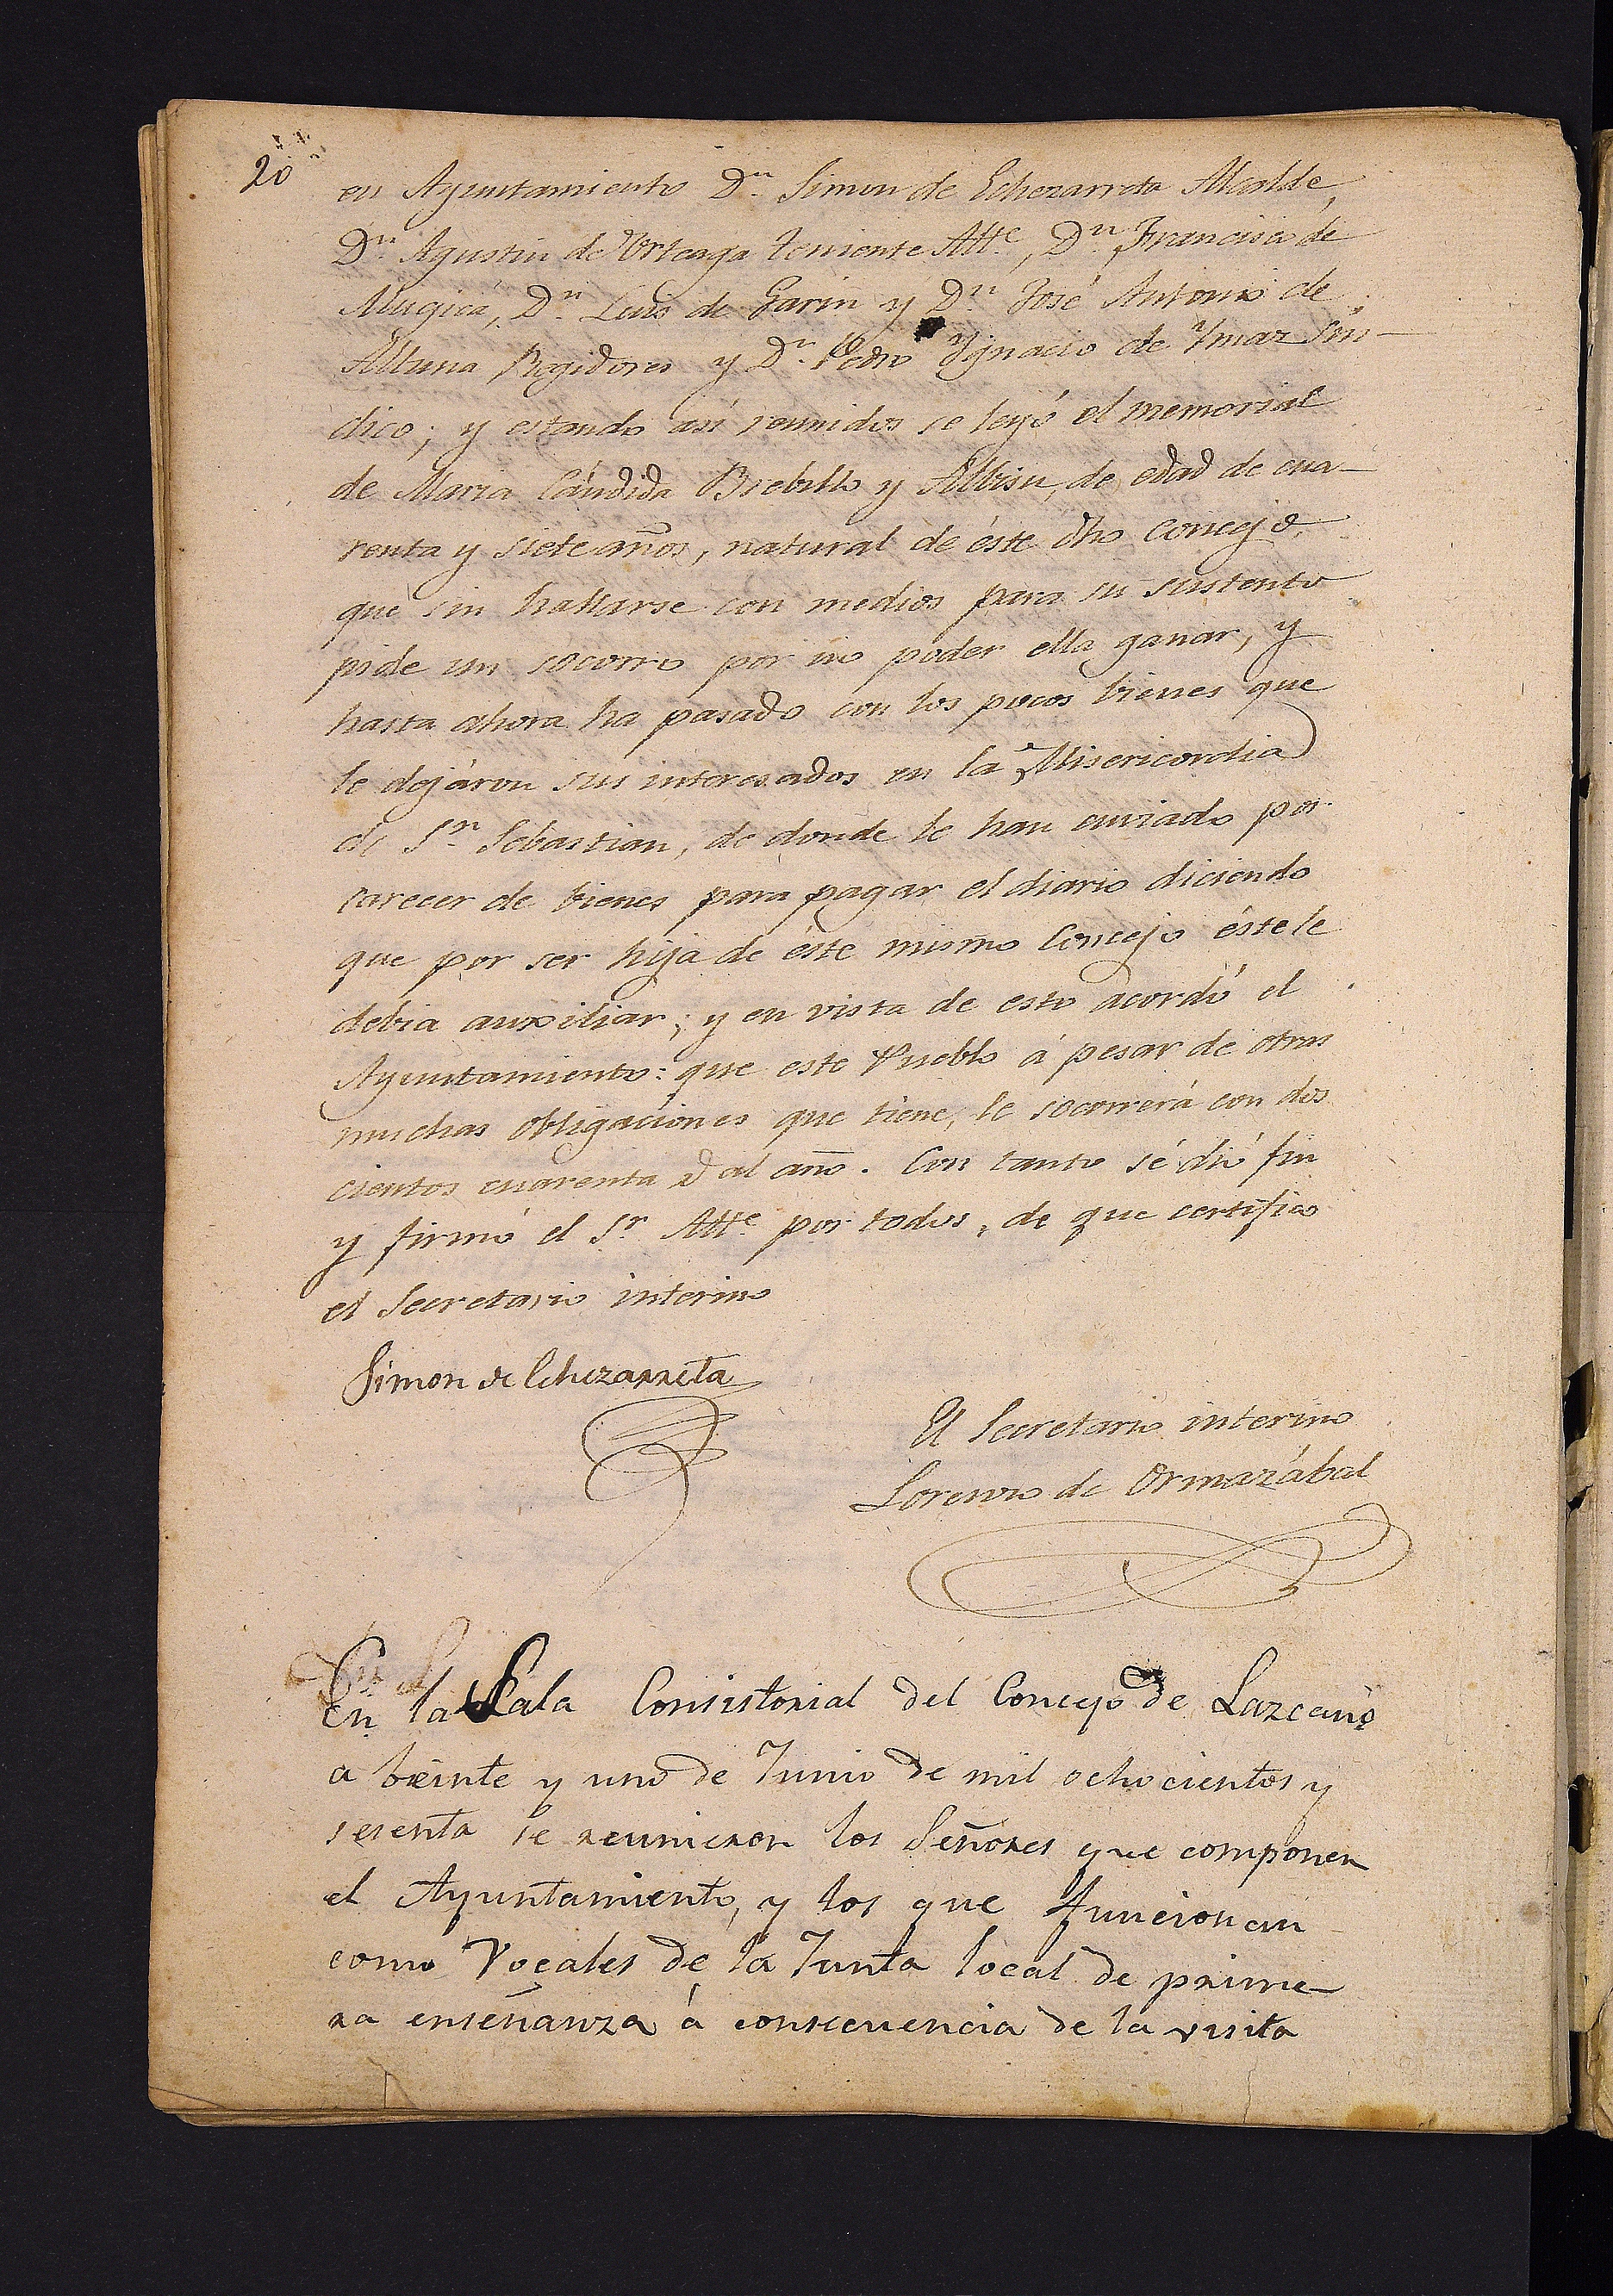 20
en Ayuntamiento Dn. Simon de Echezarreta Alcalde,
Dn. Agustin de Urteaga teniente Alle., Dn. Francisco de
Mugica, Dn. Luis de Garin y Dn. José Antonio de
Altuna Regidores y Dn. Pedro Ygnacio de Ymaz Sín-
dico; y estando así reunidos se leyó el memorial
de Maria Cándida Brebillo y Albisu, de edad de cua-
renta y siete años, natural de éste dho Concejo,
que sin hallarse con medios para su sustento
pide un socorro por no poder ella ganar, y
hasta ahora ha pasado con los pocos bienes que
le dejáron sus interesados en la Misericordia
de Sn. Sebastian, de donde le han enviado por
carecer de bienes para pagar el diario diciendo
que por ser hija de éste mismo Concejo éste le
debia auxiliar; y en vista de esto acordó el
Ayuntamiento: que este Pueblo á pesar de otras
muchas obligaciones que tiene, le socorrerá con dos
cientos cuarenta al año. Con tanto sé dió fin
y firmó el Sr. Alle. por todos, de que certifico
el Secretario interino
Simon de Echezarreta
El Secretario interino
Lorenzo de Ormazábal
En la Sala Consistorial del Concejo de Lazcano
a beinte y uno de Junio de mil ochocientos y
sesenta se reunieron los Señores que componen
el Ayuntamiento, y los que funcionan
como Vocales de la Junta local de prime-
ra enseñanza á consecuencia de la visita